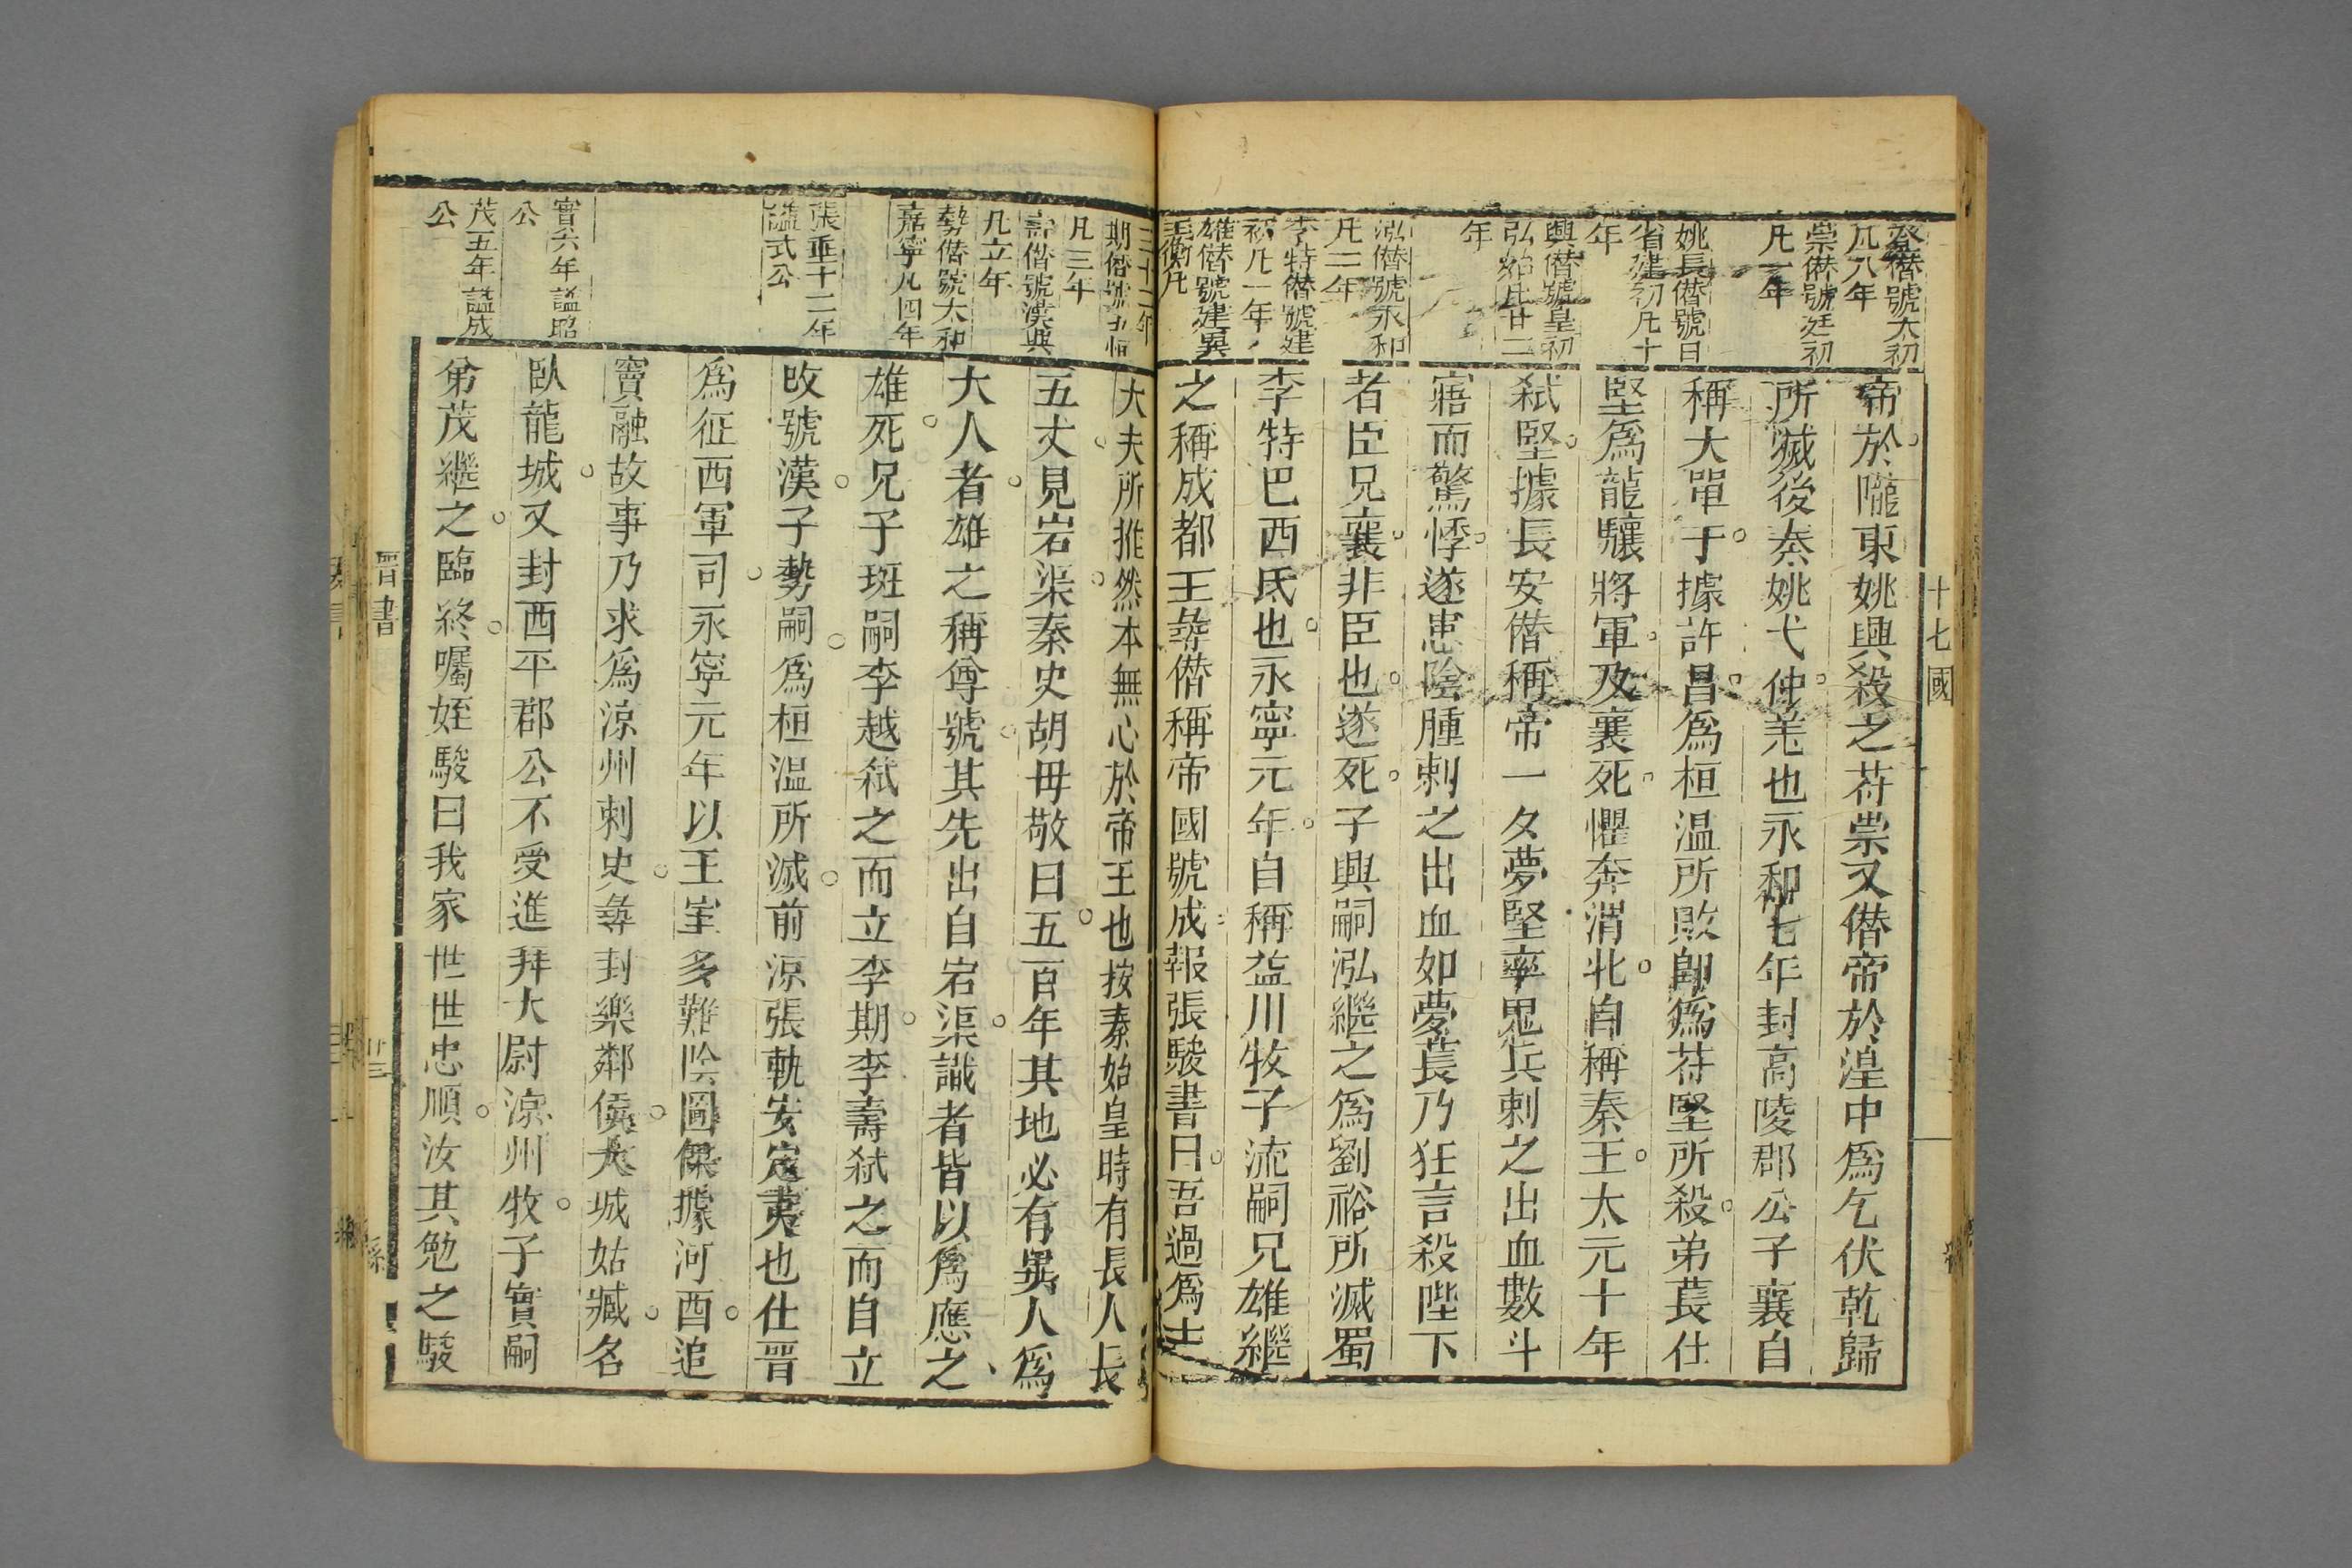 十七國
登僣號太初
凡八年
崇僣號延初
凡一年
姚長僣號日
省建初凡十
年
興僣號皇初
弘始凡廿二
年
泓僣號永和
凡二年
李特僣號建
初凡一年
雄僣號建興
王衡凡
帝於隴東姚興殺之苻崇又僣帝於湟中爲乞伏乾歸
所滅後秦姚弋仲羌也永和七年封高陵郡公子襄自
稱大單于據許昌爲桓温所敗卽爲苻堅所殺弟萇仕
堅爲龍驤將軍及襄死懼奔渭北自稱秦王太元十年
弒堅據長安僣稱帝一夕夢堅率鬼兵刺之出血數斗
寤而驚悸遂患陰腫刺之出血如夢萇乃狂言殺陛下
者臣兄襄非臣也遂死子興嗣泓繼之爲劉裕所滅蜀
李特巴西氐也永寧元年自稱益川牧子流嗣兄雄繼
之稱成都王尋僣稱帝國號成報張駿書曰吾過爲士
三十二年
期僣號玉恒
凡三年
壽僣號漢興
凡立年
勢僣號太和
嘉寧凡四年
張垂十二年
謚式公
寔六年謚昭
公
茂五年謚成
公
大夫所推然本無心於帝王也按秦始皇時有長人長
五丈見岩渠秦史胡毋敬曰五百年其地必有異人爲
大人者雄之稱尊號其先出自宕渠識者皆以爲應之
雄死兄子班嗣李越弒之而立李期李壽弒之而自立
改號漢子勢嗣爲桓温所滅前涼張軌安定夷也仕晋
爲征西軍司永寧元年以王室多難陰圖𠎝據河西追
竇融故事乃求爲涼州刺史尋封樂鄰侯大城姑臧名
臥龍城又封西平郡公不受進拜大尉涼州牧子寔嗣
弟茂繼之臨終囑姪駿曰我家世世忠順汝其勉之駿
晋書
廿三